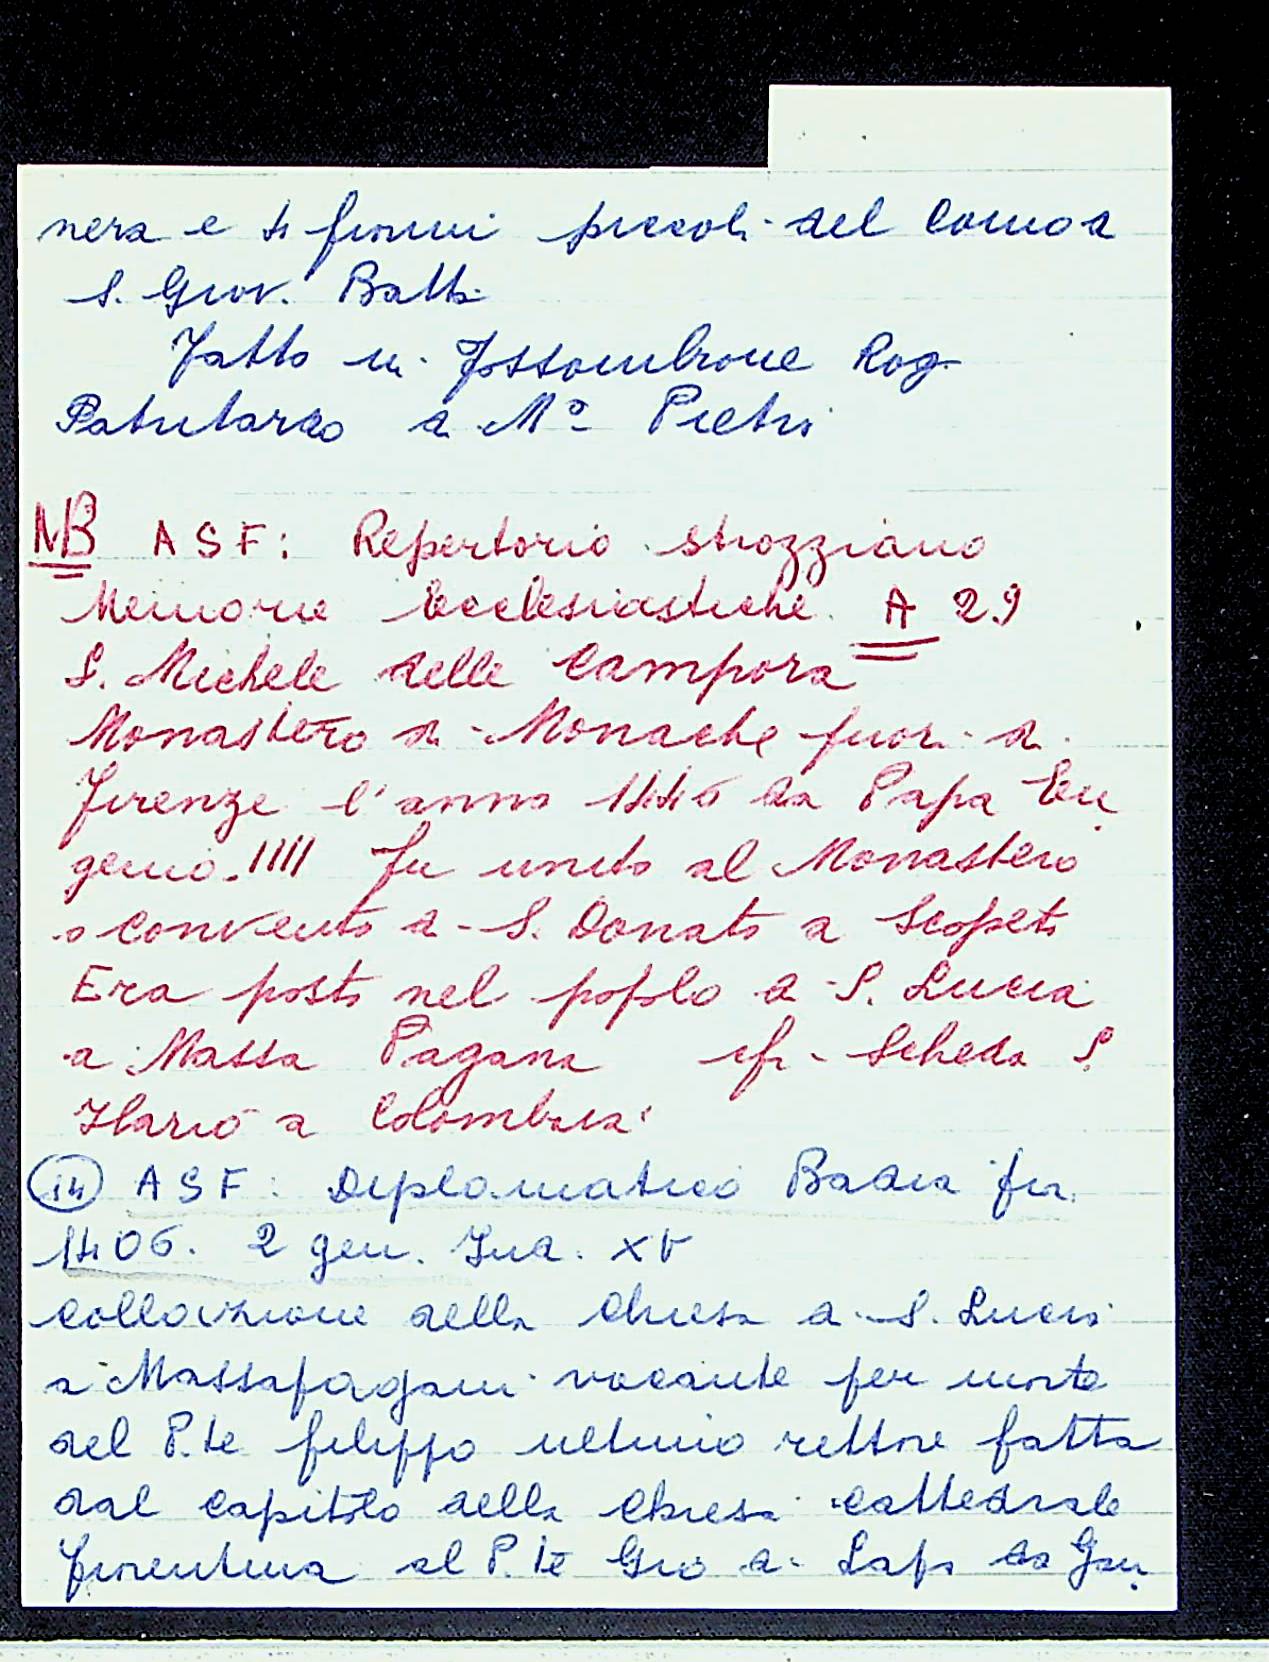 nera e 4 fiorini piccoli del conio di
S. Giov. Batta
Fatto in Fossombrone Rog
a Mo Pietro
NB ASF: Repertorio strozziano
Memorie Ecclesiastiche A 29
S. Michele delle Campora
Monastero di Monache fuori di
Firenze l'anno 1440 da Papa Eu
genio IIII fu unito al Monastero
o convento di S. Donato a Scopeto
Era posto nel popolo di S. Lucia
a Massa Pagana cfr. Scheda S.
Ilario a Colombaia
14 ASF: Diplomatico Badia fior.
1406. 2 gen. Ind. XV
Collazione della Chiesa di S. Lucia
a Massapagani vacante per morte
del P.te filippo ultimo rettore fatta
dal capitolo della Chiesa cattedrale
fiorentina al P.te Gio di Lapo da Gan